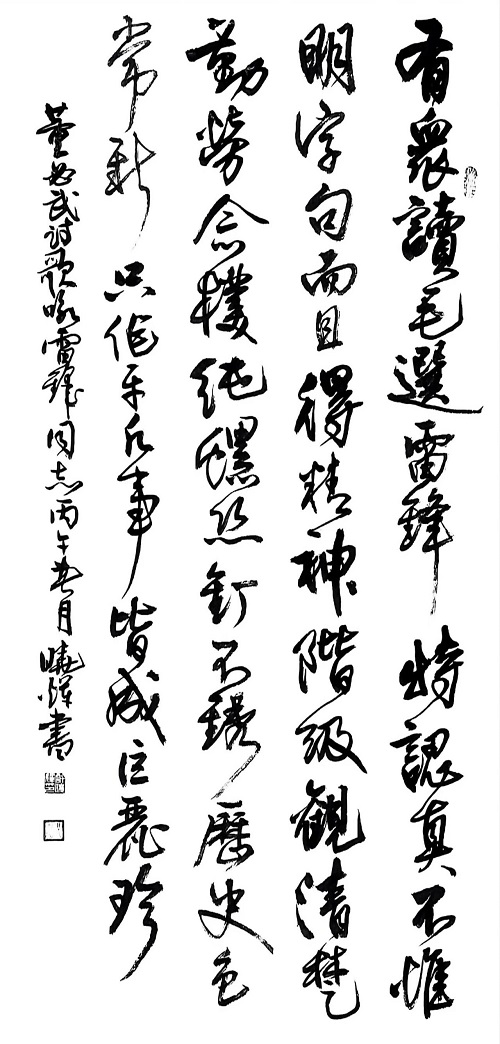 有眾讀毛選雷鋒特認真不惟
明字句而且得精神階級觀清楚
勤勞念樸純螺絲釘不銹歷史色
常新只作平凡事皆成巨麗珍
董必武討歌咏雷鋒同志丙午春月曉輝書